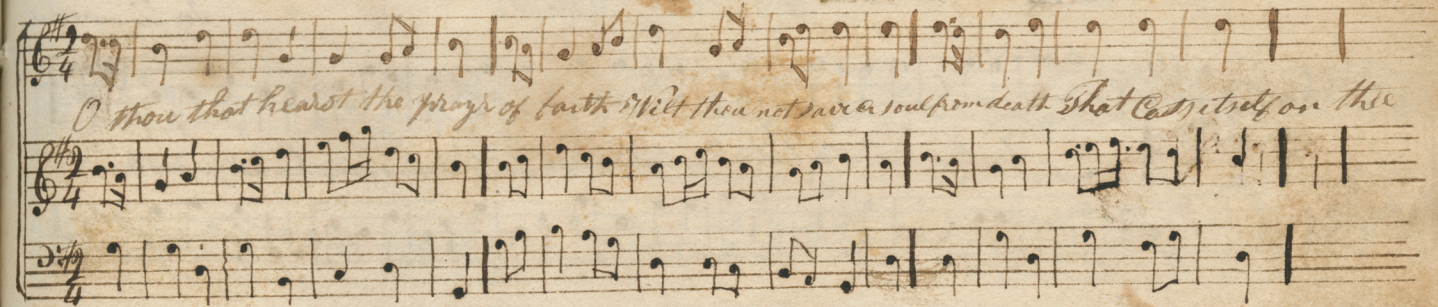 2 4
O thou that hearst the prayr of faith Wilt thou not save a soul from death That Casts itself on thee
2 4
2 4